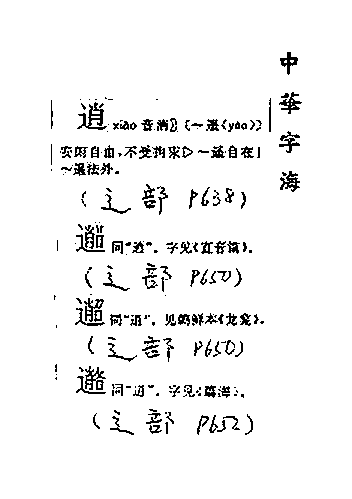 中華字海
逍 xiāo 音消〖~遥(yáo)〗
安闲自由,不受拘束▷~遥自在|
~遥法外。
(辶部 P638)
同“逍”。字见《直音篇》。
(辶部 P650)
同“逍”。见朝鲜本《龙龛》。
(辶部 P650)
同“逍”。字见《篇海》。
(辶部 P652)